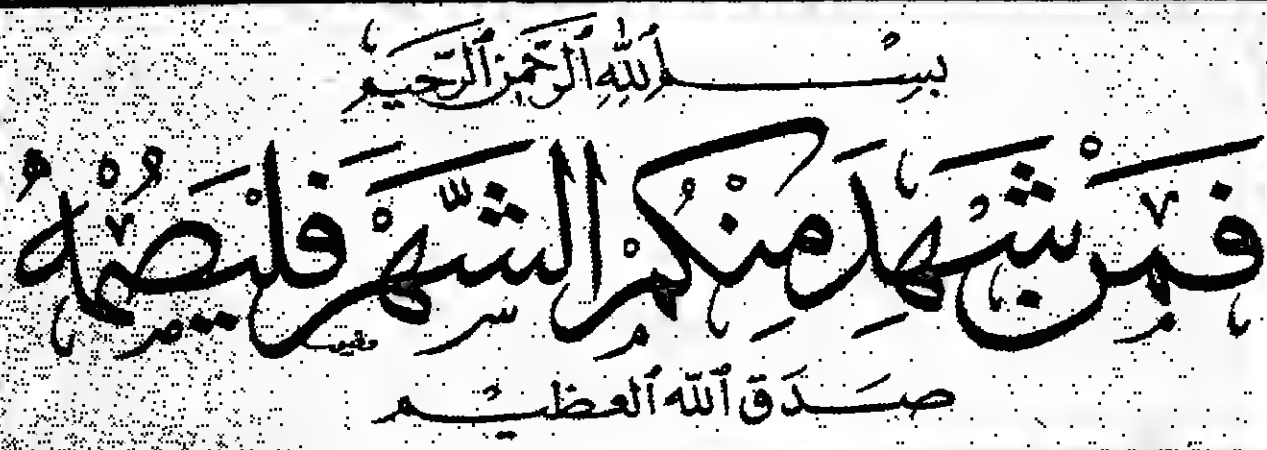 بِسْمِ ٱللّٰهِ ٱلرَّحْمٰنِ ٱلرَّحِيمِ
فَمَنْ شَهِدَ مِنْكُمُ الشَّهْرَ فَلْيَصُمْهُ
صَدَقَ ٱللّٰه ٱلعَظِيم